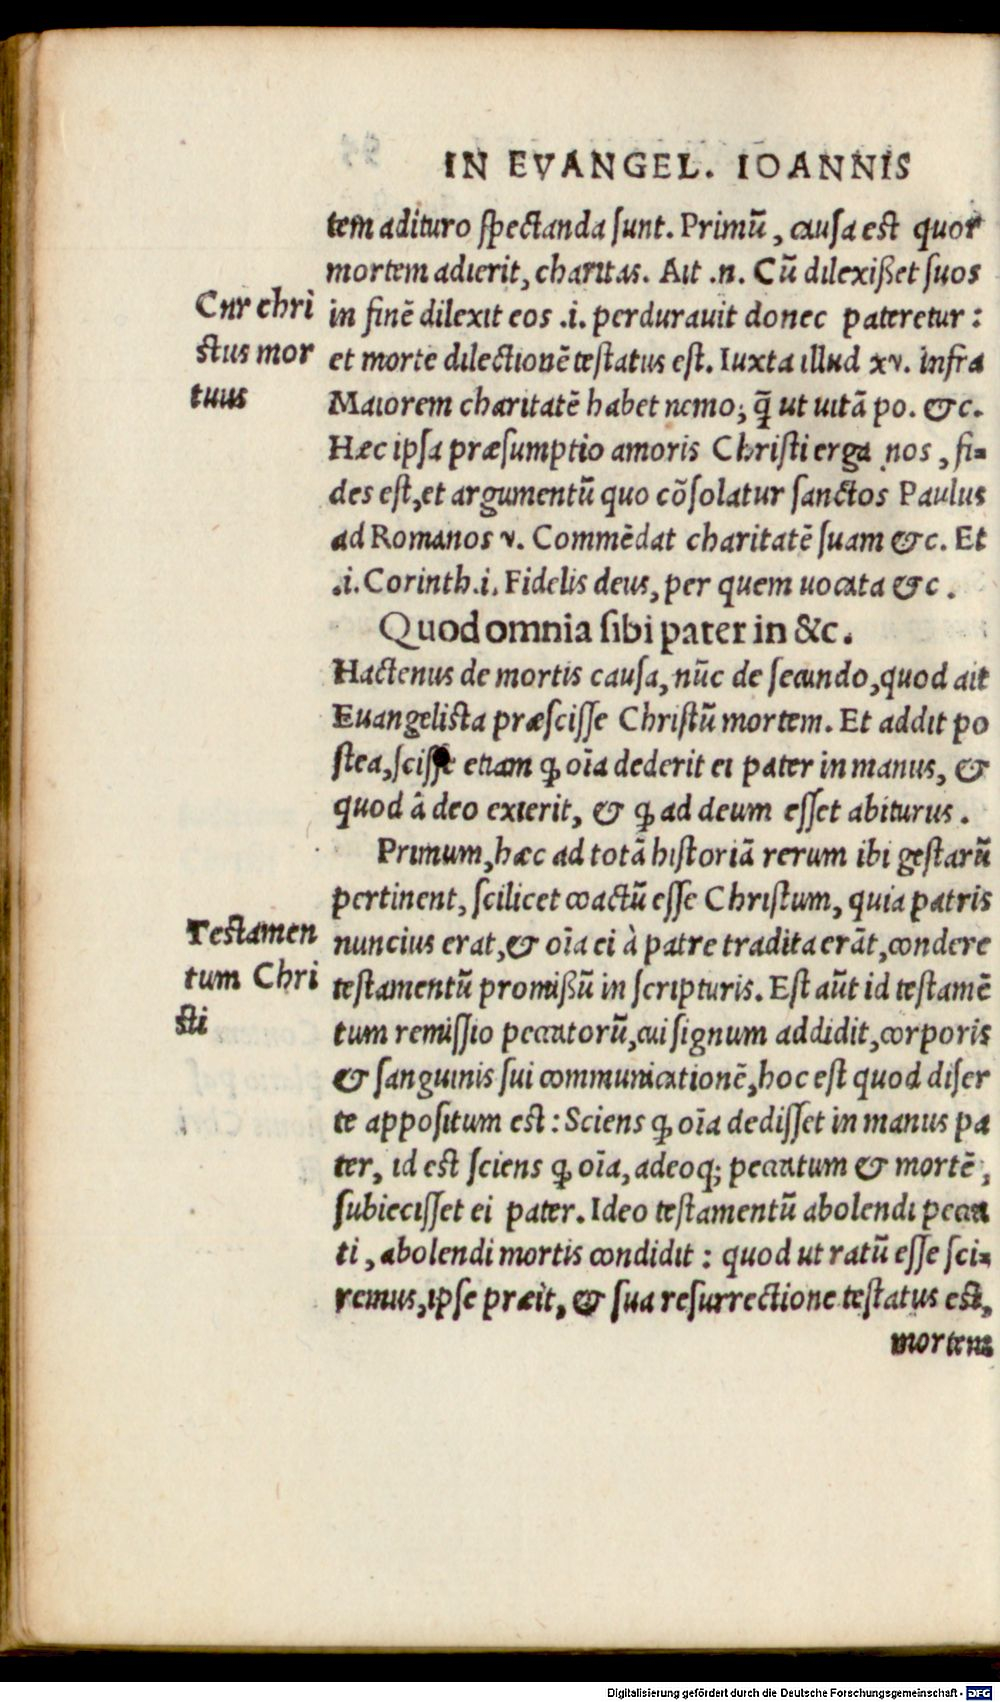 IN EVANGEL. IOANNIS
tem adituro spectanda sunt. Primū, causa est quor
mortem adierit, charitas. Ait .n. Cū dilexißet suos
Cur chri
in finē dilexit eos .i. perdurauit donec pateretur :
stus mor
et morte dilectionē testatus est. Iuxta illud xv. infra
tuus
Maiorem charitatē habet nemo; q̄ ut uitā po. &c.
Hæc ipsa præsumptio amoris Christi erga nos, fi=
des est, et argumentū quo cōsolatur sanctos Paulus
ad Romanos v. Commēdat charitatē suam &c. Et
.i. Corinth.i. Fidelis deus, per quem uocata &c.
Quod omnia sibi pater in &c.
Hactenus de mortis causa, nūc de secundo, quod ait
Euangelista præscisse Christū mortem. Et addit po
stea, scisse etiam ꝙ oīa dederit ei pater in manus, &
quod â deo exierit, & ꝙ ad deum esset abiturus.
Primum, hæc ad totā historiā rerum ibi gestarū
pertinent, scilicet coactū esse Christum, quia patris
Testamen
nuncius erat, & oīa ei à patre tradita erāt, condere
tum Chri
testamentū promißū in scripturis. Est aūt id testamē
sti
tum remissio peccatorū, cui signum addidit, corporis
& sanguinis sui communicationē, hoc est quod diser
te appositum est : Sciens ꝙ oīa dedisset in manus pa
ter, id est sciens ꝙ oīa, adeoq; peccatum & mortē,
subiecisset ei pater. Ideo testamentū abolendi pecca
ti, abolendi mortis condidit : quod ut ratū esse sci=
remus, ipse præit, & sua resurrectione testatus est,
mortem
Digitalisierung gefördert durch die Deutsche Forschungsgemeinschaft - DFG